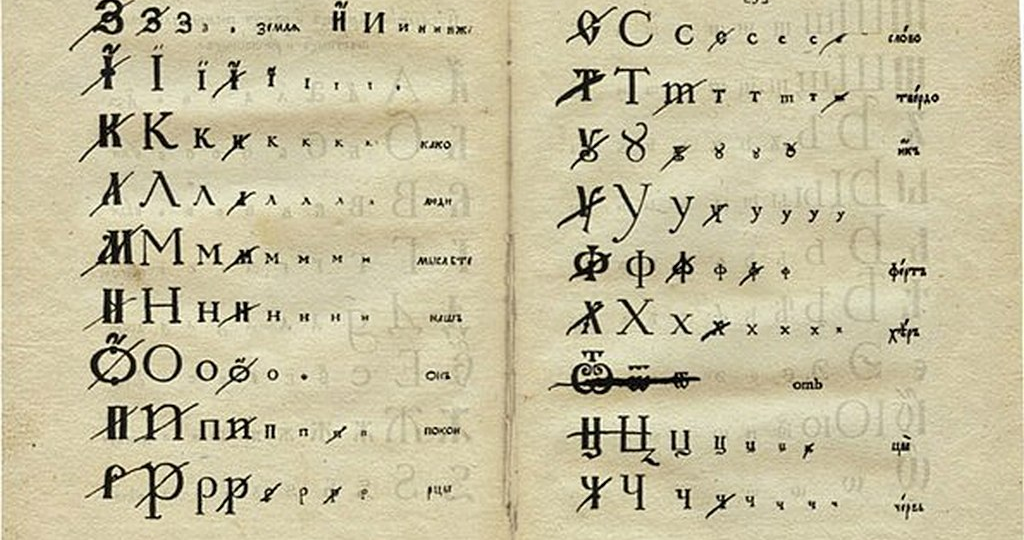 З З З з з земля Й И и и и иже
Ї Ї ї ї ї ı ı ı ı
К К к к к к к к како
Л Л л л л л л л люди
М М м м м м м м мыслѣте
Н Н н н н н н н нашъ
О О о о о о онъ
П П п п п п п п покои
Р Р р р р р р р рцы
С С с с с с с сло́во
Т Т т т т т т тве́рдо
Ȣ Ȣ ȣ ȣ ȣ ȣ и҆́къ
У У у у у у у у
Ф Ф ф ф ф ф фе́ртъ
Х Х х х х х х х хѣ́ръ
Ѿ ѿ ѿ отъ
Ц Ц ц ц ц ц ц цы̀
Ч Ч ч ч ч ч ч че́рвь